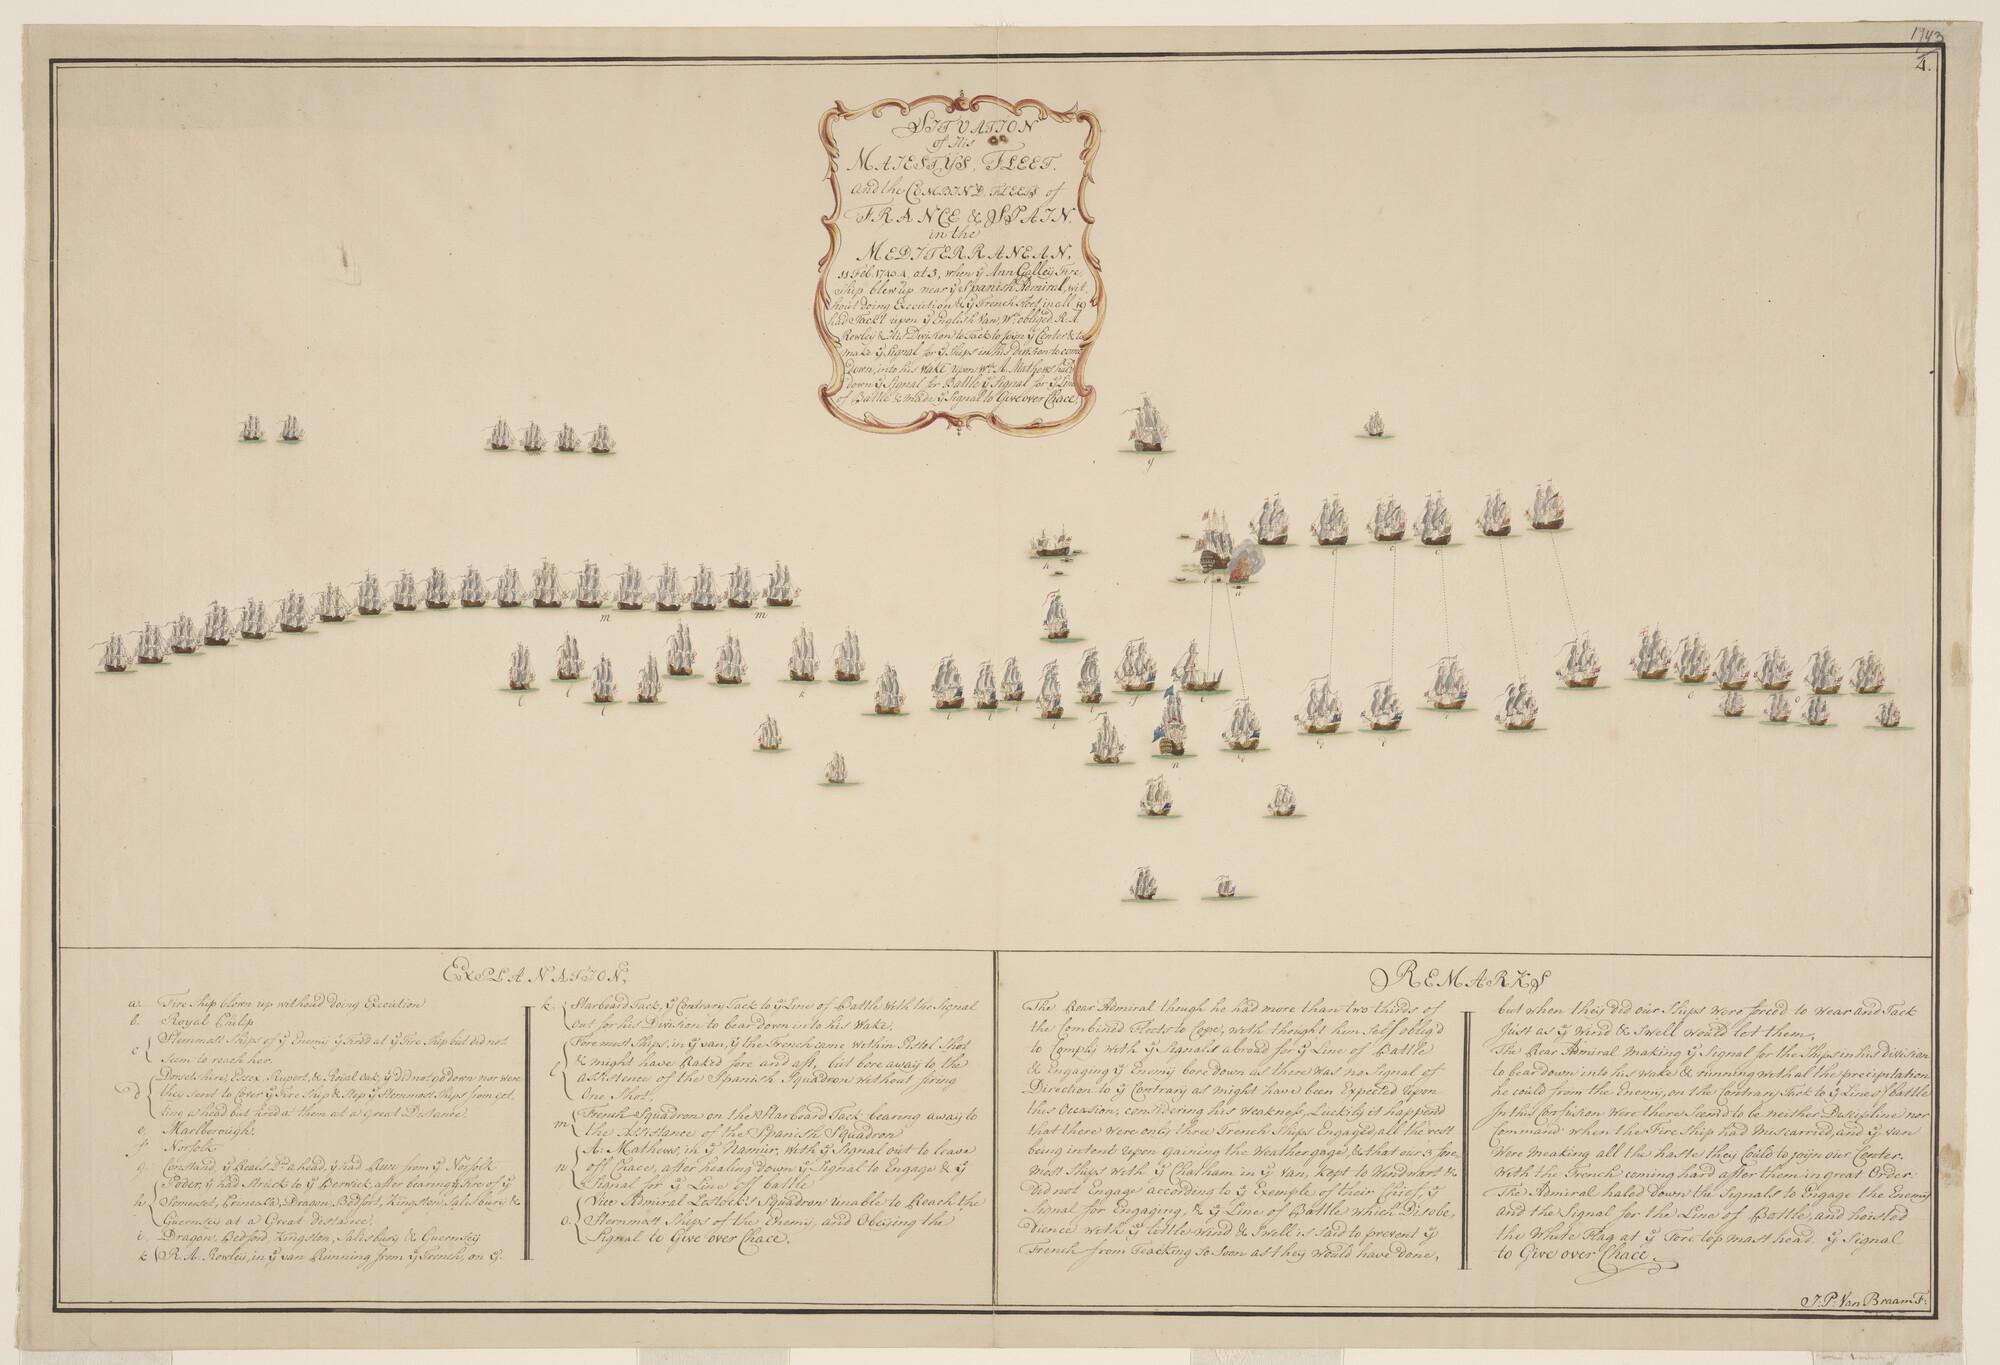 1743
4.
SITUATION
of His
MAJESTYS, FLEET.
and the COMBIN'D FLEETS of
FRANCE & SPAIN.
in the
MEDITERRANEAN,
11 Feb. 1743.4, at 3, when ÿ Ann Galley Fire
ship blew up near ÿ Spanish Admiral, wit
hout doing Execution & ÿ French Fleet in all
had Tack't upon ÿ English Van, Wch. obliged R. A.
Rowley & His Division to Tack to joyn ÿ Center & to
make ÿ Signal for ÿ Ships in his Division to come
Down, into his Wake upon Wch. A. Mathews hal'd
down ÿ Signal for Battle ÿ Signal for ÿ Line
of Battle & made ÿ Signal to Give over Chace,
g
h
a
m
m
k
n
EXPLANATION,
a. Fire ship blown up without doing Execution
b. Royal Philip
c Stemmost Ships of ÿ Enemy ÿ Fir'd at ÿ Fire ship but did not
seem to reach her.
d Dorsetshire, Essex, Rupert, & Royal Oak, ÿ did not go down nor were
they sent to Cover ÿ Fire ship & stop ÿ Stemmost Ships from get.
ting a head but fired at them at a Great Distance
e, Marlborough,
f Norfolk
g. Constand, ÿ Reals 2d. a head, ÿ had from ÿ Norfolk
h Poder, ÿ had Struck to ÿ Berwick, after bearing ÿ Fire of ÿ
Somerset, Princessa, Dragon, Bedfort, Kingston, Salisbury &
Guernsey at a Great distance,
i, Dragon, Bedford Kingston, Salisbury & Guernsey
k R. A. Rowley, in ÿ van Running from ÿ French, on ÿ.
k. Starboard Tack, ÿ Contrary Tack to ÿ Line of Battle With the Signal
out for his Division to bear down into his Wake.
l Foremost Ships, in ÿ van, ÿ the French came within Pistol Shot
& might have Raked fore and aft, but bore away to the
assistence of the Spanish Squadron without firing
One Shot.
m French Squadron on the Starboard Tack bearing away to
the Assistance of the Spanish Squadron
n A. Mathews, in ÿ Namur, With ÿ Signal out to leave
off Chace, after healing down ÿ Signal to Engage & ÿ
Signal for ÿ Line off battle
o. Vice Admirel Lestock's Squadron unable to Reach the
Sternmost Ships of the Enemy, and Obeying the
Signal to Give over Chace.
REMARKS
The Rear Admiral though he had more than two thirds of
the Combined Fleets to Cope, with thought himself oblig'd
to Comply with ÿ Signals abroad for ÿ Line of Battle
& Engaging ÿ Enemy bore down as there was no Signal of
Direction to ÿ Contrary as might have been Expected upon
this Occasion, considering his Weakness, Luckily it happend
that there were only three French ships Engaged, all the rest
being intent upon gaining the Weathergage, & that our 3 fore
most ships With ÿ Chatham in ÿ Van, Kept to Windwart &
did not Engage according to ÿ Exemple of their Chief, ÿ
Signal for Engaging, & ÿ Line of Battle which Disobe,
dience With ÿ little Wind & Swell is said to prevent ÿ
French from Teacking so soon as they would have done,
but when they did our Ships were forced to wear and Tack
Just as ÿ Wind & Swell would let them,
The Rear Admiral making ÿ Signal for the Ships in his division
to bear down into his Wake & running with al the precipitation
he could from the Enemy, on the Contrary Tack to ÿ Line of battle
In this Confusion Were there seem'd to be neither Discipline nor
Command when the Fire ship had miscarried, and ÿ van
Were meaking all the haste they Could to joyn our Center.
With the French coming hard after them in great Order.
The Admiral haled down the Signals to Engage the Enemy
and the Signal for the Line of Battle, and hoisted
the White Flag at ÿ Fore top mast head ÿ Signal
to Give over Chace.
J. P. Van Braam F: